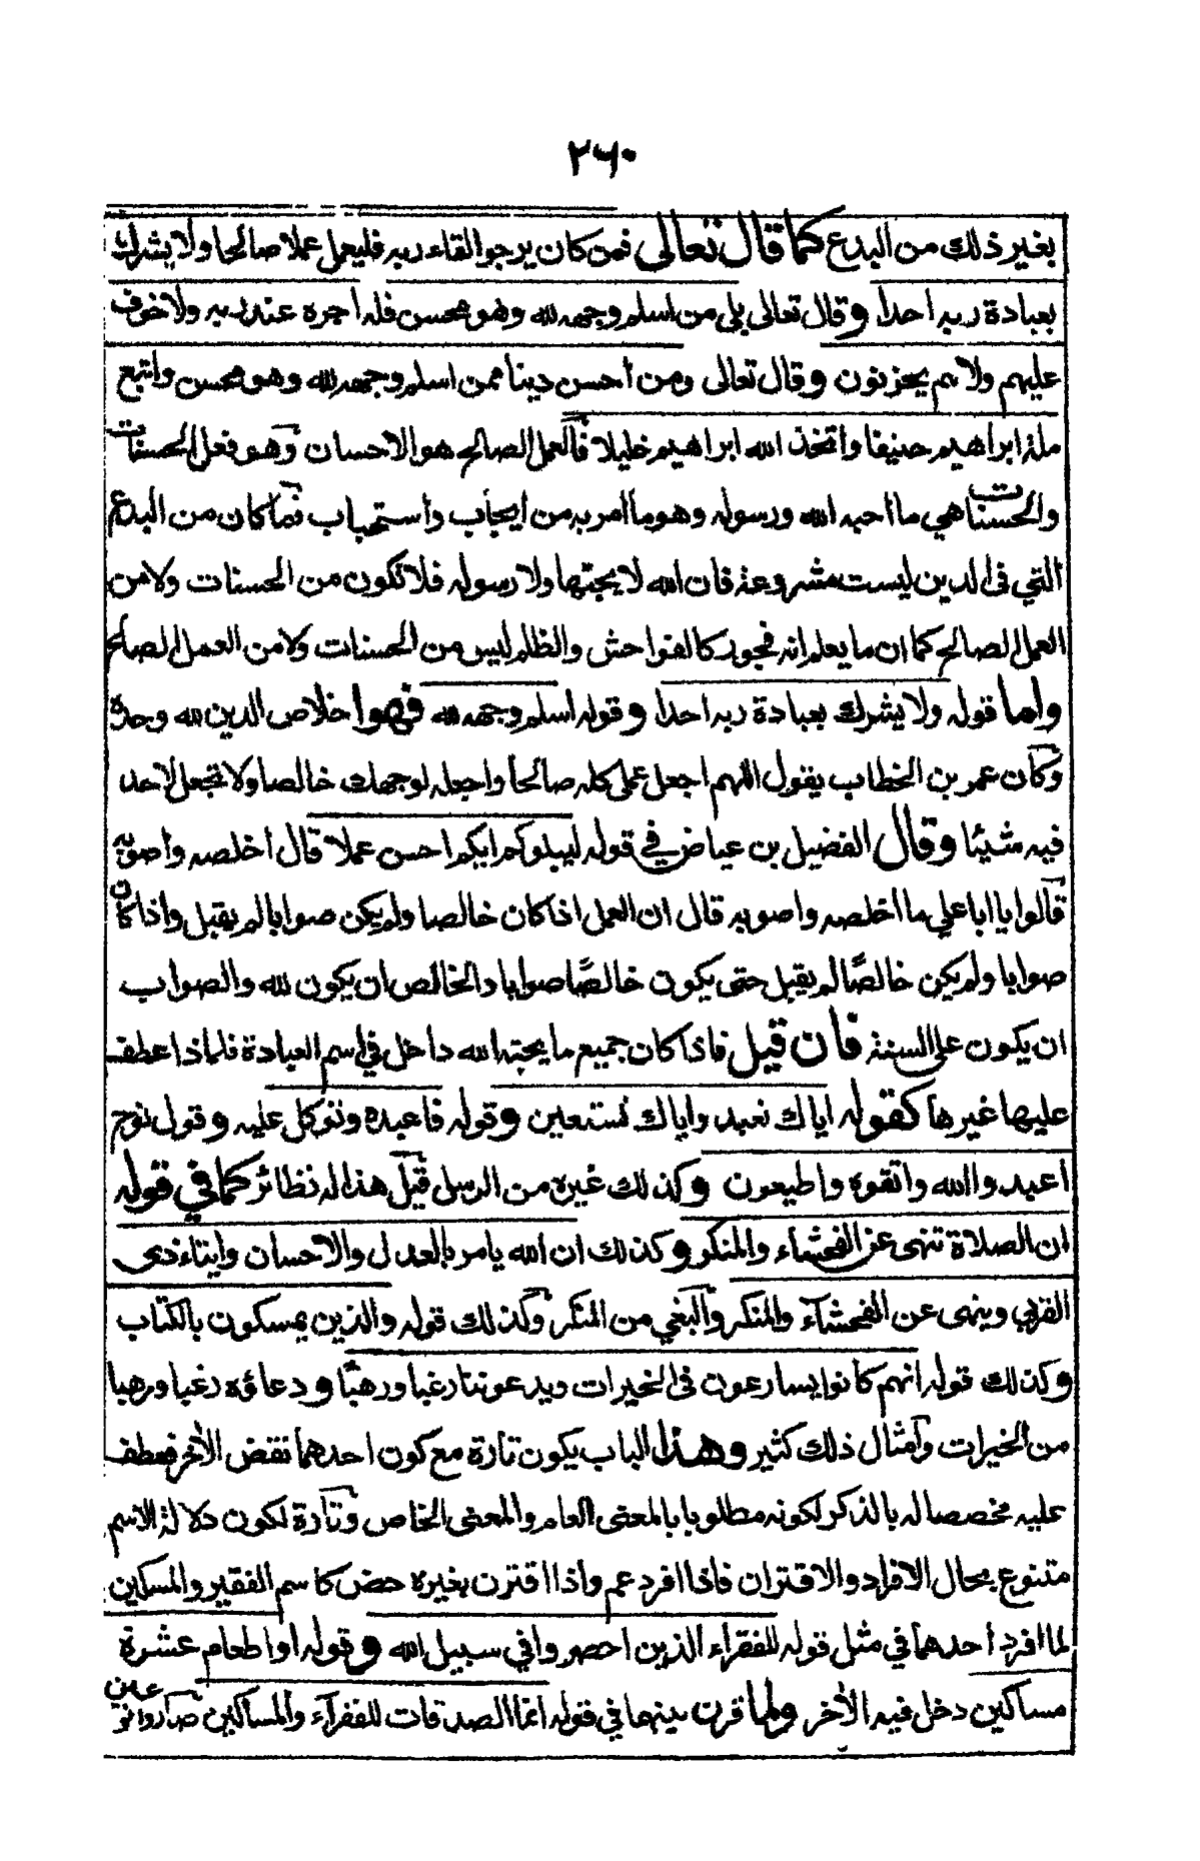 ٢٦٠
بغير ذلك من البدع كما قال تعالى فمن كان يرجو القاء ربه فليعمل عملا صالحا ولا يشرك
بعبادة ربه احدا وقال تعالى بلى من اسلم وجهه لله وهو محسن فله اجره عند ربه ولا خوف
عليهم ولا هم يحزنون وقال تعالى ومن أحسن دينا ممن اسلم وجهه لله وهو محسن واتبع
ملة ابراهيم حنيفا واتخذ الله ابراهيم خليلا فالعمل الصالح هو الاحسان وهو فعل الحسنات
والحسنات هي ما احبه الله ورسوله وهو ما أمر به من إيجاب واستحباب فما كان من البدع
التي في الدين ليست مشروعة فان الله لا يحبها ولا رسوله فلا تكون من الحسنات ولا من
العمل الصالح كما ان ما يعلم انه فجور كالفواحش والظلم ليس من الحسنات ولا من العمل الصالح
واما قوله ولا يشرك بعبادة ربه احدا وقوله اسلم وجهه لله فهو اخلاص الدين لله وحده
وكان عمر بن الخطاب يقول اللهم اجعل عملي كله صالحا واجعله لوجهك خالصا ولا تجعل لاحد
فيه شيئا وقال الفضيل بن عياض في قوله ليبلوكم ايكم احسن عملا قال أخلصه وأصوبه
قالوا يا ابا علي ما اخلصه واصوبه قال ان العمل اذا كان خالصا ولم يكن صوابا لم يقبل واذا كان
صوابا ولم يكن خالصًا لم يقبل حتى يكون خالصًا صوابا والخالص ان يكون لله والصواب
ان يكون على السنة فان قيل فاذا كان جميع ما يحبه الله داخل في اسم العبادة فلماذا عطف
عليها غيرها كقوله اياك نعبد واياك نستعين وقوله فاعبده وتوكل عليه وقول نوح
اعبدوا الله واتقوه واطيعون وكذلك غيره من الرسل قيل هذا له نظائر كما في قوله
ان الصلاة تنهى عن الفحشاء والمنكر وكذلك ان الله يامر بالعدل والاحسان وايتاء ذى
القربى وينهى عن الفحشآء والمنكر والبغي من المنكر وكذلك قوله والذين يمسكون بالكتاب
وكذلك قوله انهم كانوا يسارعون في الخيرات ويدعوننا رغبا ورهبًا ودعاؤه رغبا ورهبا
من الخيرات وأمثال ذلك كثير وهذا الباب يكون تارة مع كون احدهما نقض الأخر فعطف
عليه مخصصا له بالذكر لكونه مطلوبا بالمعنى العام والمعنى الخاص وتارة لكون دلالة الاسم
متنوع بحال الافراد والاقتران فاذا افرد عم واذا اقترن بغيره خص كاسم الفقير والمسكين
لما افرد أحدهما في مثل قوله للفقراء الذين احصروا في سبيل الله وقوله او اطعام عشرة
مساكين دخل فيه الأخر ولما قرن بينهما في قوله انما الصدقات للفقرآء والمساكين صاروا نوعين